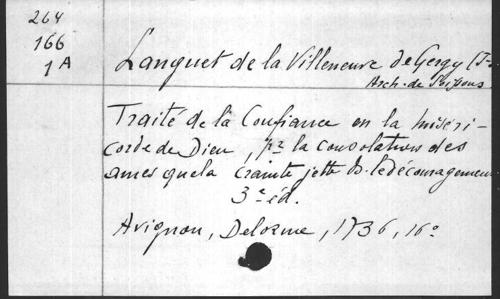 264
166
1A
Languet de la Villeneuve de Gergy (J-
Arch. de Soissons
Traité de la Confiance en la miséri-
corde de Dieu, pr la consolation des
ames que la crainte jette ds. le découragement
3e éd.
Avignon, Delorme, 1736, 16o